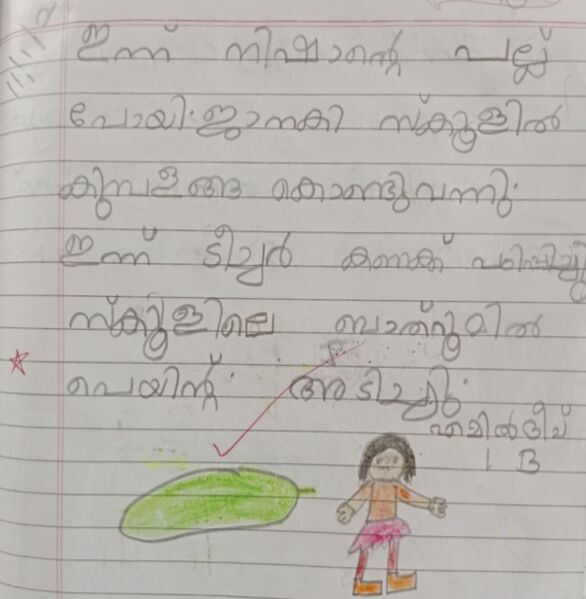 ഇന്ന് നിഷാന്റെ പല്ല്
പോയി. ജാനകി സ്കൂളിൽ
കുമ്പളങ്ങ കൊണ്ടുവന്നു.
ഇന്ന് ടീച്ചർ കണക്ക് പഠിപ്പിച്ചു
സ്കൂളിലെ ബാത്റൂമിൽ
പെയിന്റ് അടിച്ചു.
1 B